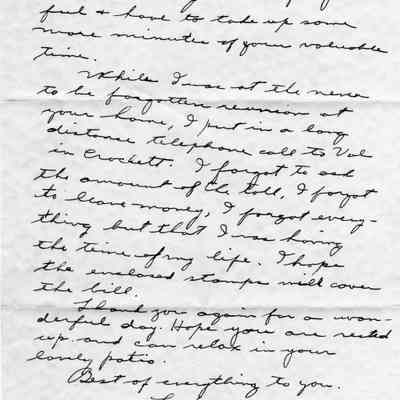 feel & have to take up some
more minutes of your valuable
time.
While I was at the never
to be forgotten reunion at
your home, I put in a long
distance telephone call to Val
in Crockett. I forgot to ask
the amount of the toll, I forgot
to leave money, I forgot every-
thing but that I was having
the time of my life. I hope
the enclosed stamps will cover
the bill.
Thank you again for a won-
derful day. Hope you are rested
up and can relax in your
lovely patio.
Best of everything to you.